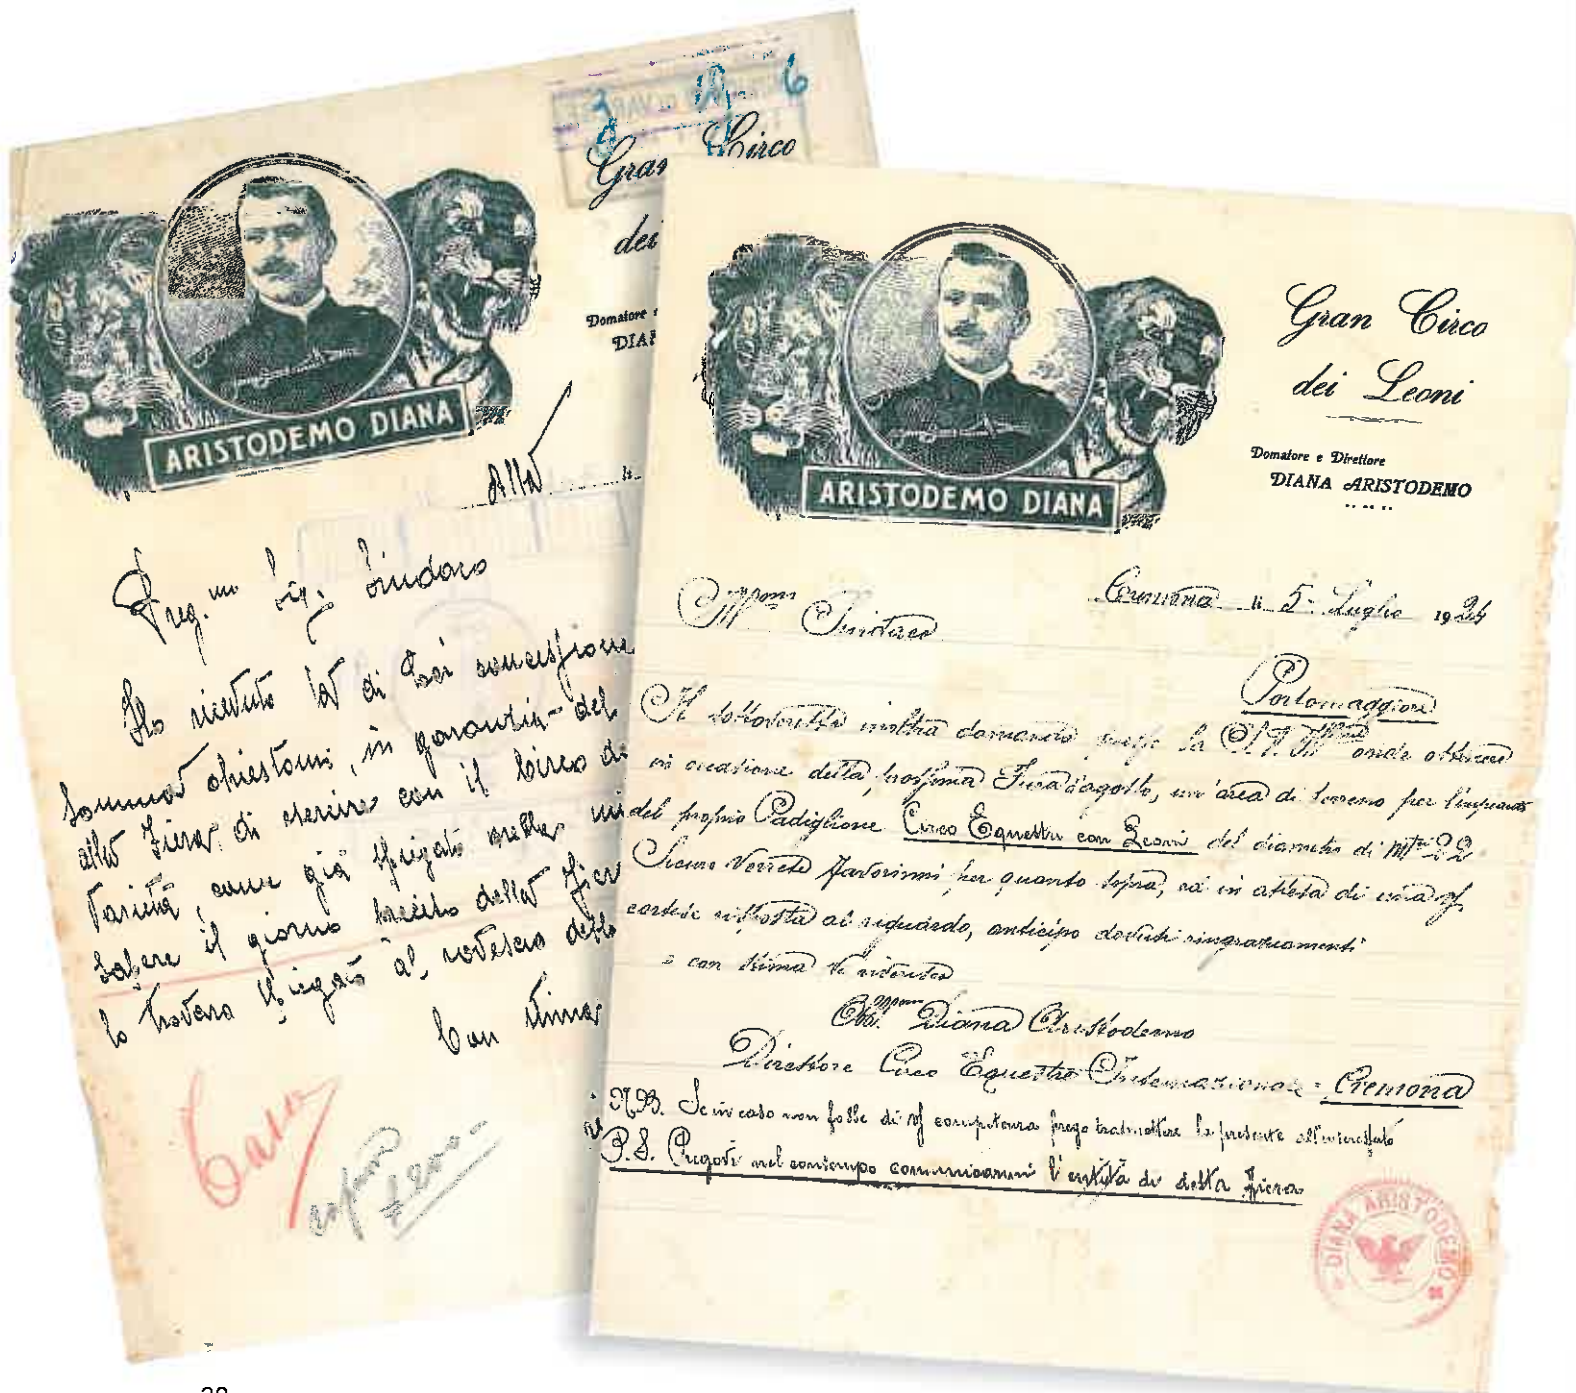 3 6
Gran Circo
dei
Domatore e
ARISTODEMO DIANA
Alla li
Preg.mo Sig. Sindaco
Ho ricevuto la di Lei concessione
somma chiestami, in garanzia del
alla Fiera di esercire con il Circo di
Varietà, come già spiegato nella mi
sapere il giorno preciso della Fier
lo troverà spiegato al rovescio della
Con stima
Gran Circo
dei Leoni
Domatore e Direttore
DIANA ARISTODEMO
ARISTODEMO DIANA
Cremona li 5 Luglio 1924
Ill Sindaco
Portomaggiore
Il sottoscritto inoltra domanda presso la S.V. Ill onde ottenere
in occasione della prossima Fiera d'agosto, un'area di terreno per l'impianto
del proprio Padiglione Circo Equestre con Leoni del diametro di Mtr 22
Sicuro vorrete favorirmi per quanto sopra, ed in attesa di una
cortese risposta al riguardo, anticipo dovuti ringraziamenti
e con stima vi riverisco
Diana Aristodemo
Direttore Circo Equestre Internazionale - Cremona
N.B. Se in caso non fosse di competenza prego trasmettere la presente all'interessato
P.S. Pregovi nel contempo comunicarmi l'entità di detta Fiera
DIANA ARISTODEMO